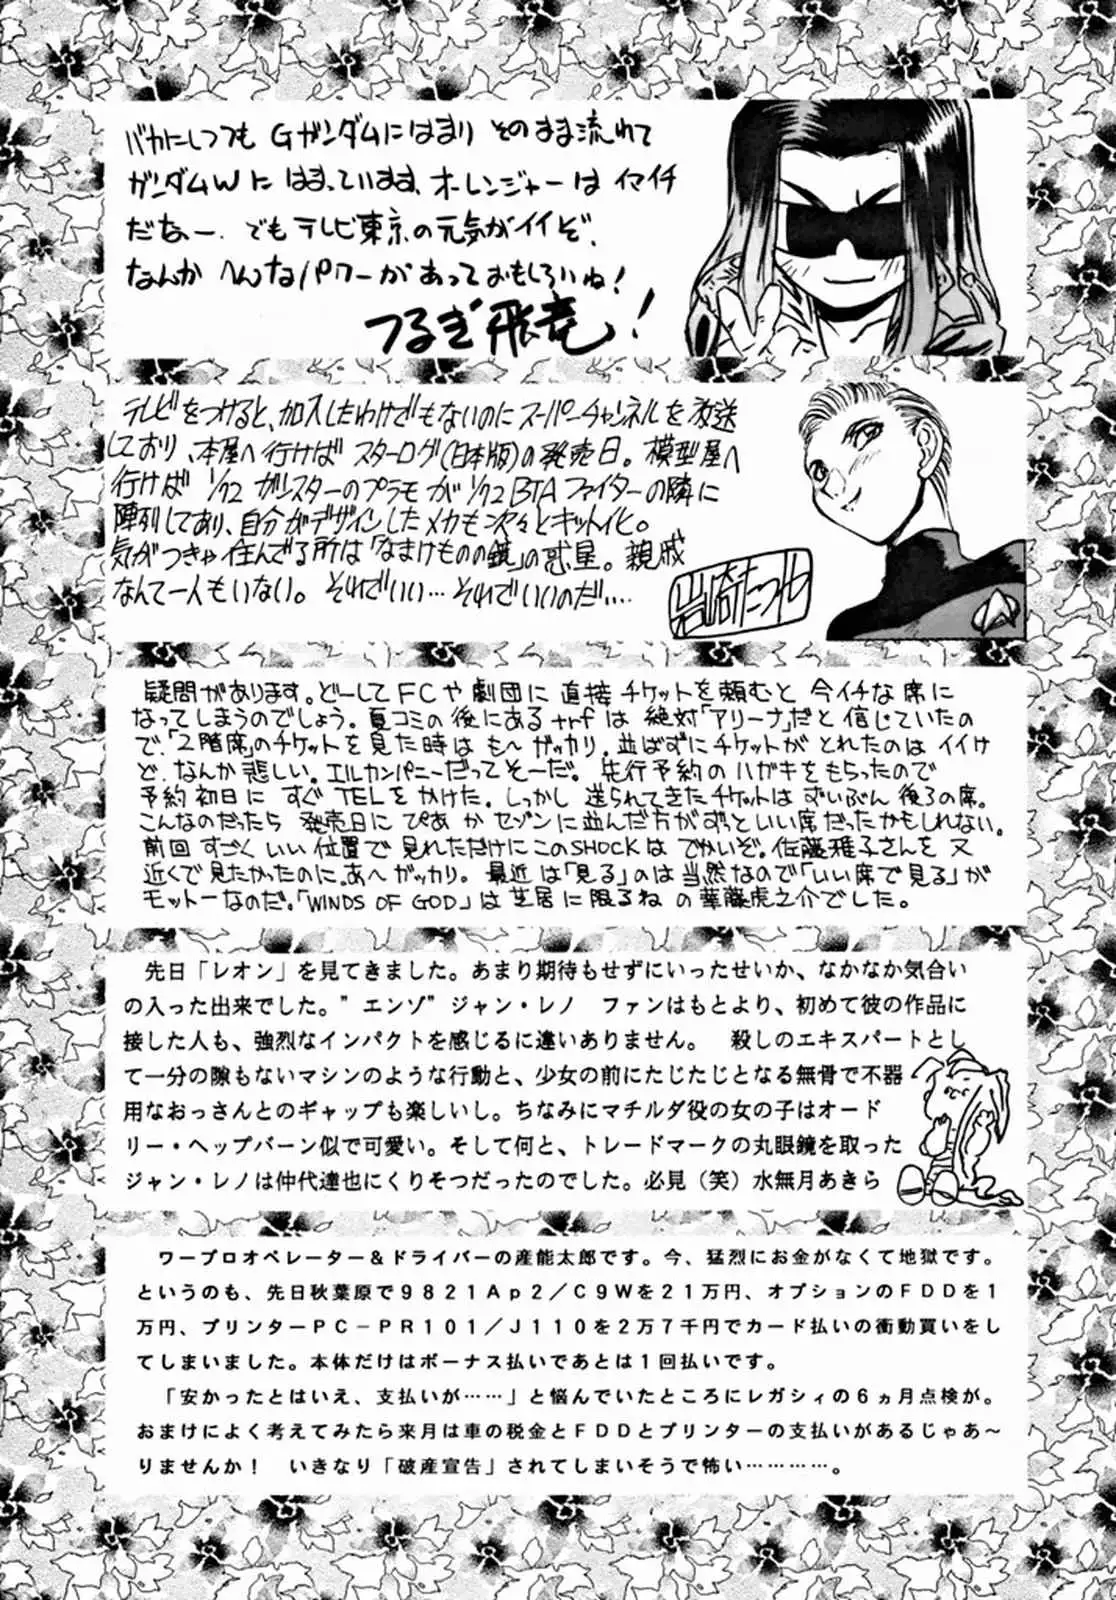 バカにしつつも Gガンダムにはまり そのまま流れて
ガンダムWに はまっています、オーレンジャーは イマイチ
だなー. でもテレビ東京の元気がイイぞ.
なんか へんなパワーが あっておもしろいね!
つるぎ飛竜!
テレビをつけると、加入したわけでもないのにスーパーチャンネルを放送
しており、本屋へ行けば スターログ(日本版)の発売日。模型屋へ
行けば 1/72 ガンスターのプラモが 1/72 BTAファイターの隣に
陣列してあり、自分がデザインしたメカも次々とキット化。
気がつきゃ住んでる所は「なまけものの鏡」の惑星。親戚
なんて一人もいない。それでいい…それでいいのだ‥‥
岩崎たつや
疑問があります。どーしてFCや劇団に直接チケットを頼むと 今イチな席に
なってしまうのでしょう。夏コミの後にある trfは 絶対「アリーナ」だと信じていたの
で、「2階席」のチケットを見た時は も〜ガッカリ。並ばずにチケットが とれたのは イイけ
ど、なんか悲しい。エルカンパニーだってそーだ。先行予約のハガキをもらったので
予約初日に すぐTELをかけた。しっかし 送られてきたチケットは ずいぶん後ろの席。
こんなのだったら 発売日に ぴあ か セゾンに並んだ方がずっといい席だったかもしれない。
前回すごくいい位置で見れただけにこのSHOCKは でかいぞ。佐藤雅子さんを又
近くで見たかったのに。あ〜ガッカリ。最近は「見る」のは当然なので「いい席で見る」が
モットーなのだ。「WINDS OF GOD」は芝居に限るね の華藤虎之介でした。
先日「レオン」を見てきました。あまり期待もせずにいったせいか、なかなか気合い
の入った出来でした。"エンゾ"ジャン・レノ ファンはもとより、初めて彼の作品に
接した人も、強烈なインパクトを感じるに違いありません。 殺しのエキスパートとし
て一分の隙もないマシンのような行動と、少女の前にたじたじとなる無骨で不器
用なおっさんとのギャップも楽しいし。ちなみにマチルダ役の女の子はオード
リー・ヘップバーン似で可愛い。そして何と、トレードマークの丸眼鏡を取った
ジャン・レノは仲代達也にくりそつだったのでした。必見（笑）水無月あきら
ワープロオペレーター＆ドライバーの産能太郎です。今、猛烈にお金がなくて地獄です。
というのも、先日秋葉原で9821Ap2／C9Wを21万円、オプションのFDDを1
万円、プリンターPC－PR101／J110を2万7千円でカード払いの衝動買いをし
てしまいました。本体だけはボーナス払いであとは1回払いです。
「安かったとはいえ、支払いが……」と悩んでいたところにレガシィの6ヵ月点検が。
おまけによく考えてみたら来月は車の税金とFDDとプリンターの支払いがあるじゃあ〜
りませんか！ いきなり「破産宣告」されてしまいそうで怖い…………。